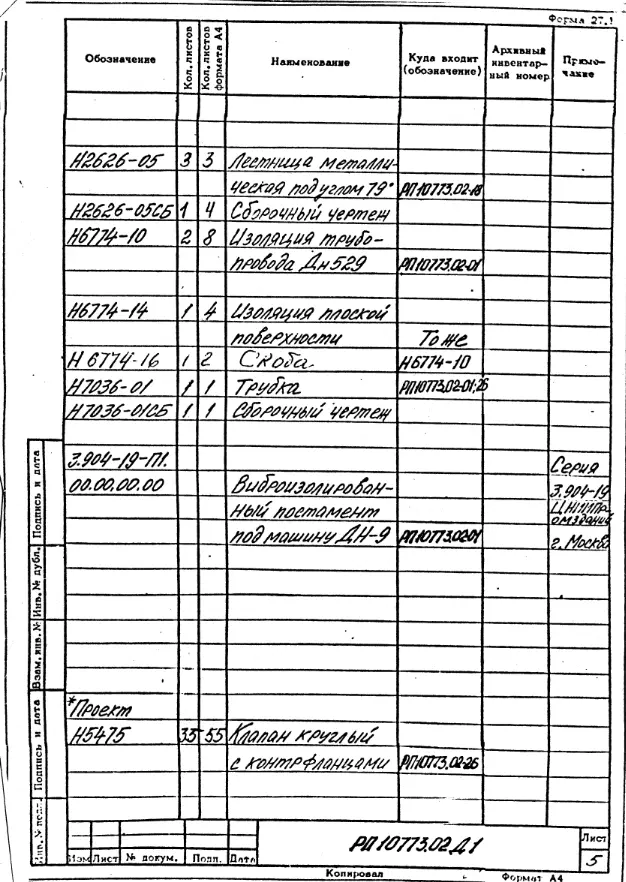 Форма 27.1
Обозначение Кол. листов Кол. листов формата А4 Наименование Куда входит (обозначение) Архивный инвентар-ный номер Приме-чание
Н2626-05 3 3 Лестница металли-
ческая под углом 79° РП10773.02-18
Н2626-05СБ 1 4 Сборочный чертеж
Н6774-10 2 8 Изоляция трубо-
провода Дн529 РП10773.02-01
Н6774-14 1 4 Изоляция плоской
поверхности То же
Н6774-16 1 2 Скоба Н6774-10
Н7036-01 1 1 Трубка РП10773.02-01;26
Н7036-01СБ 1 1 Сборочный чертеж
3.904-19-П1. Серия
00.00.00.00 Виброизолирован- 3.904-19
ный постамент ЦНИИПр
под машину ДН-9 РП10773.02-01 омзданий
г. Москва
*Проект
Н5475 33 55 Клапан круглый
с контрфланцами РП10773.02-26
Подпись и дата
Инв. № дубл.
Взам. инв. №
Подпись и дата
Инв. № подл.
РП10773.02Д1
Лист
5
Изм Лист № докум. Подп. Дата
Копировал Формат А4